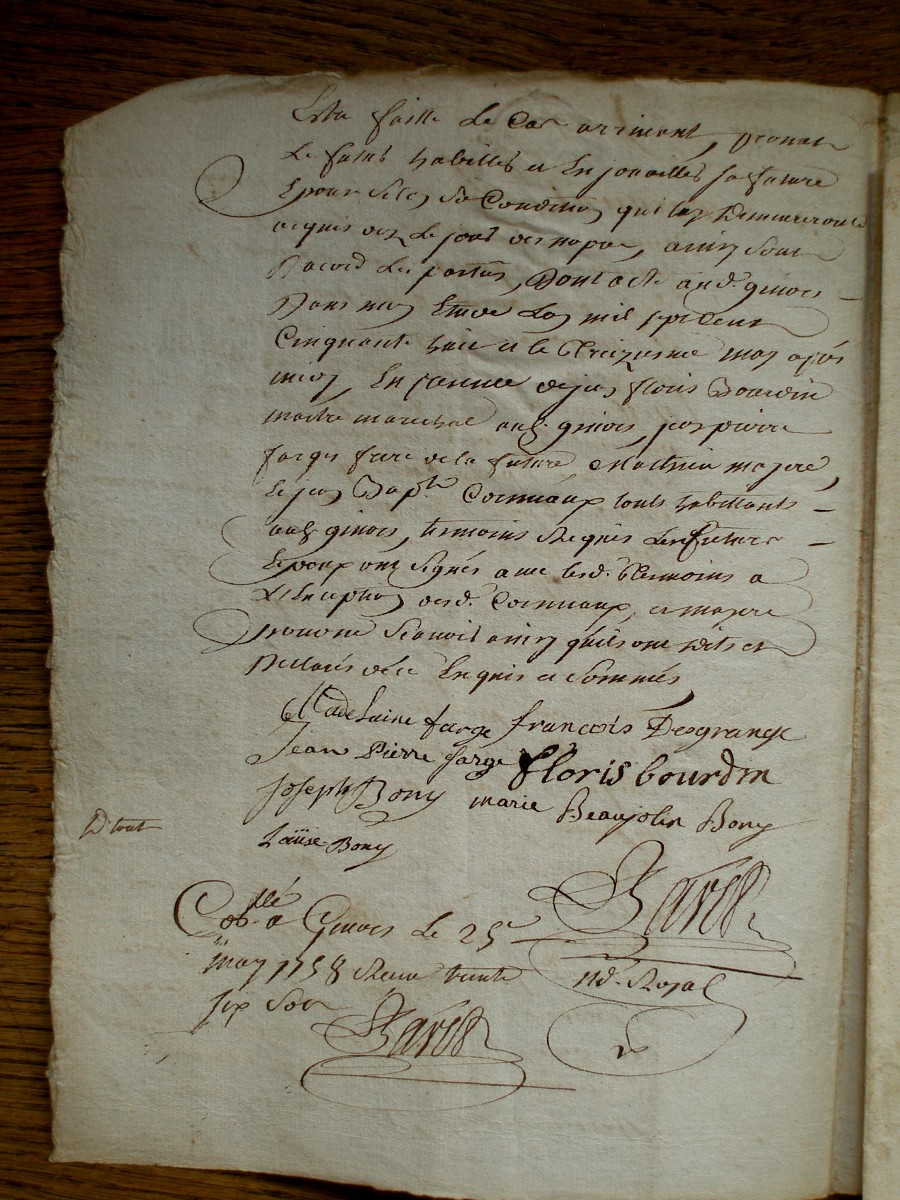 faitte le Cas arrivant, prenant
le futur habilles et Enjoailles sa future
Epouse selon sa Condition qui luy Demeureront
acquis dez le jour des nopces, ainsy sont
D'acord les parties, Dont acte aud. giuors
Dans mon Etude L'an mil sept cent
Cinquante huit et le Treiziesme may après
midy, En presence de jean floris Bourdin
maitre marechal aud. giuors, jean pierre
farges frere de la future, Mathieu majere,
et jean Bapte. Cormiaux touts habittants
aud. giuors, temoins Requis Les futurs
Epoux ont signés avec lesd. Temoins a
L'Exception desd. Cormiaux, et majere
pour ne sçavoir ainsy qu'ils ont dits et
Declarés de ce Enquis et sommés
Madelaine farge francois Desgrange
Jean Pierre farge floris bourdin
Joseph Bony marie Beaujolin Bony
Laüise Bony
D tout
Collé a Giuors le 25e
may 1758 Receu trente
six sols
Nre. Royal